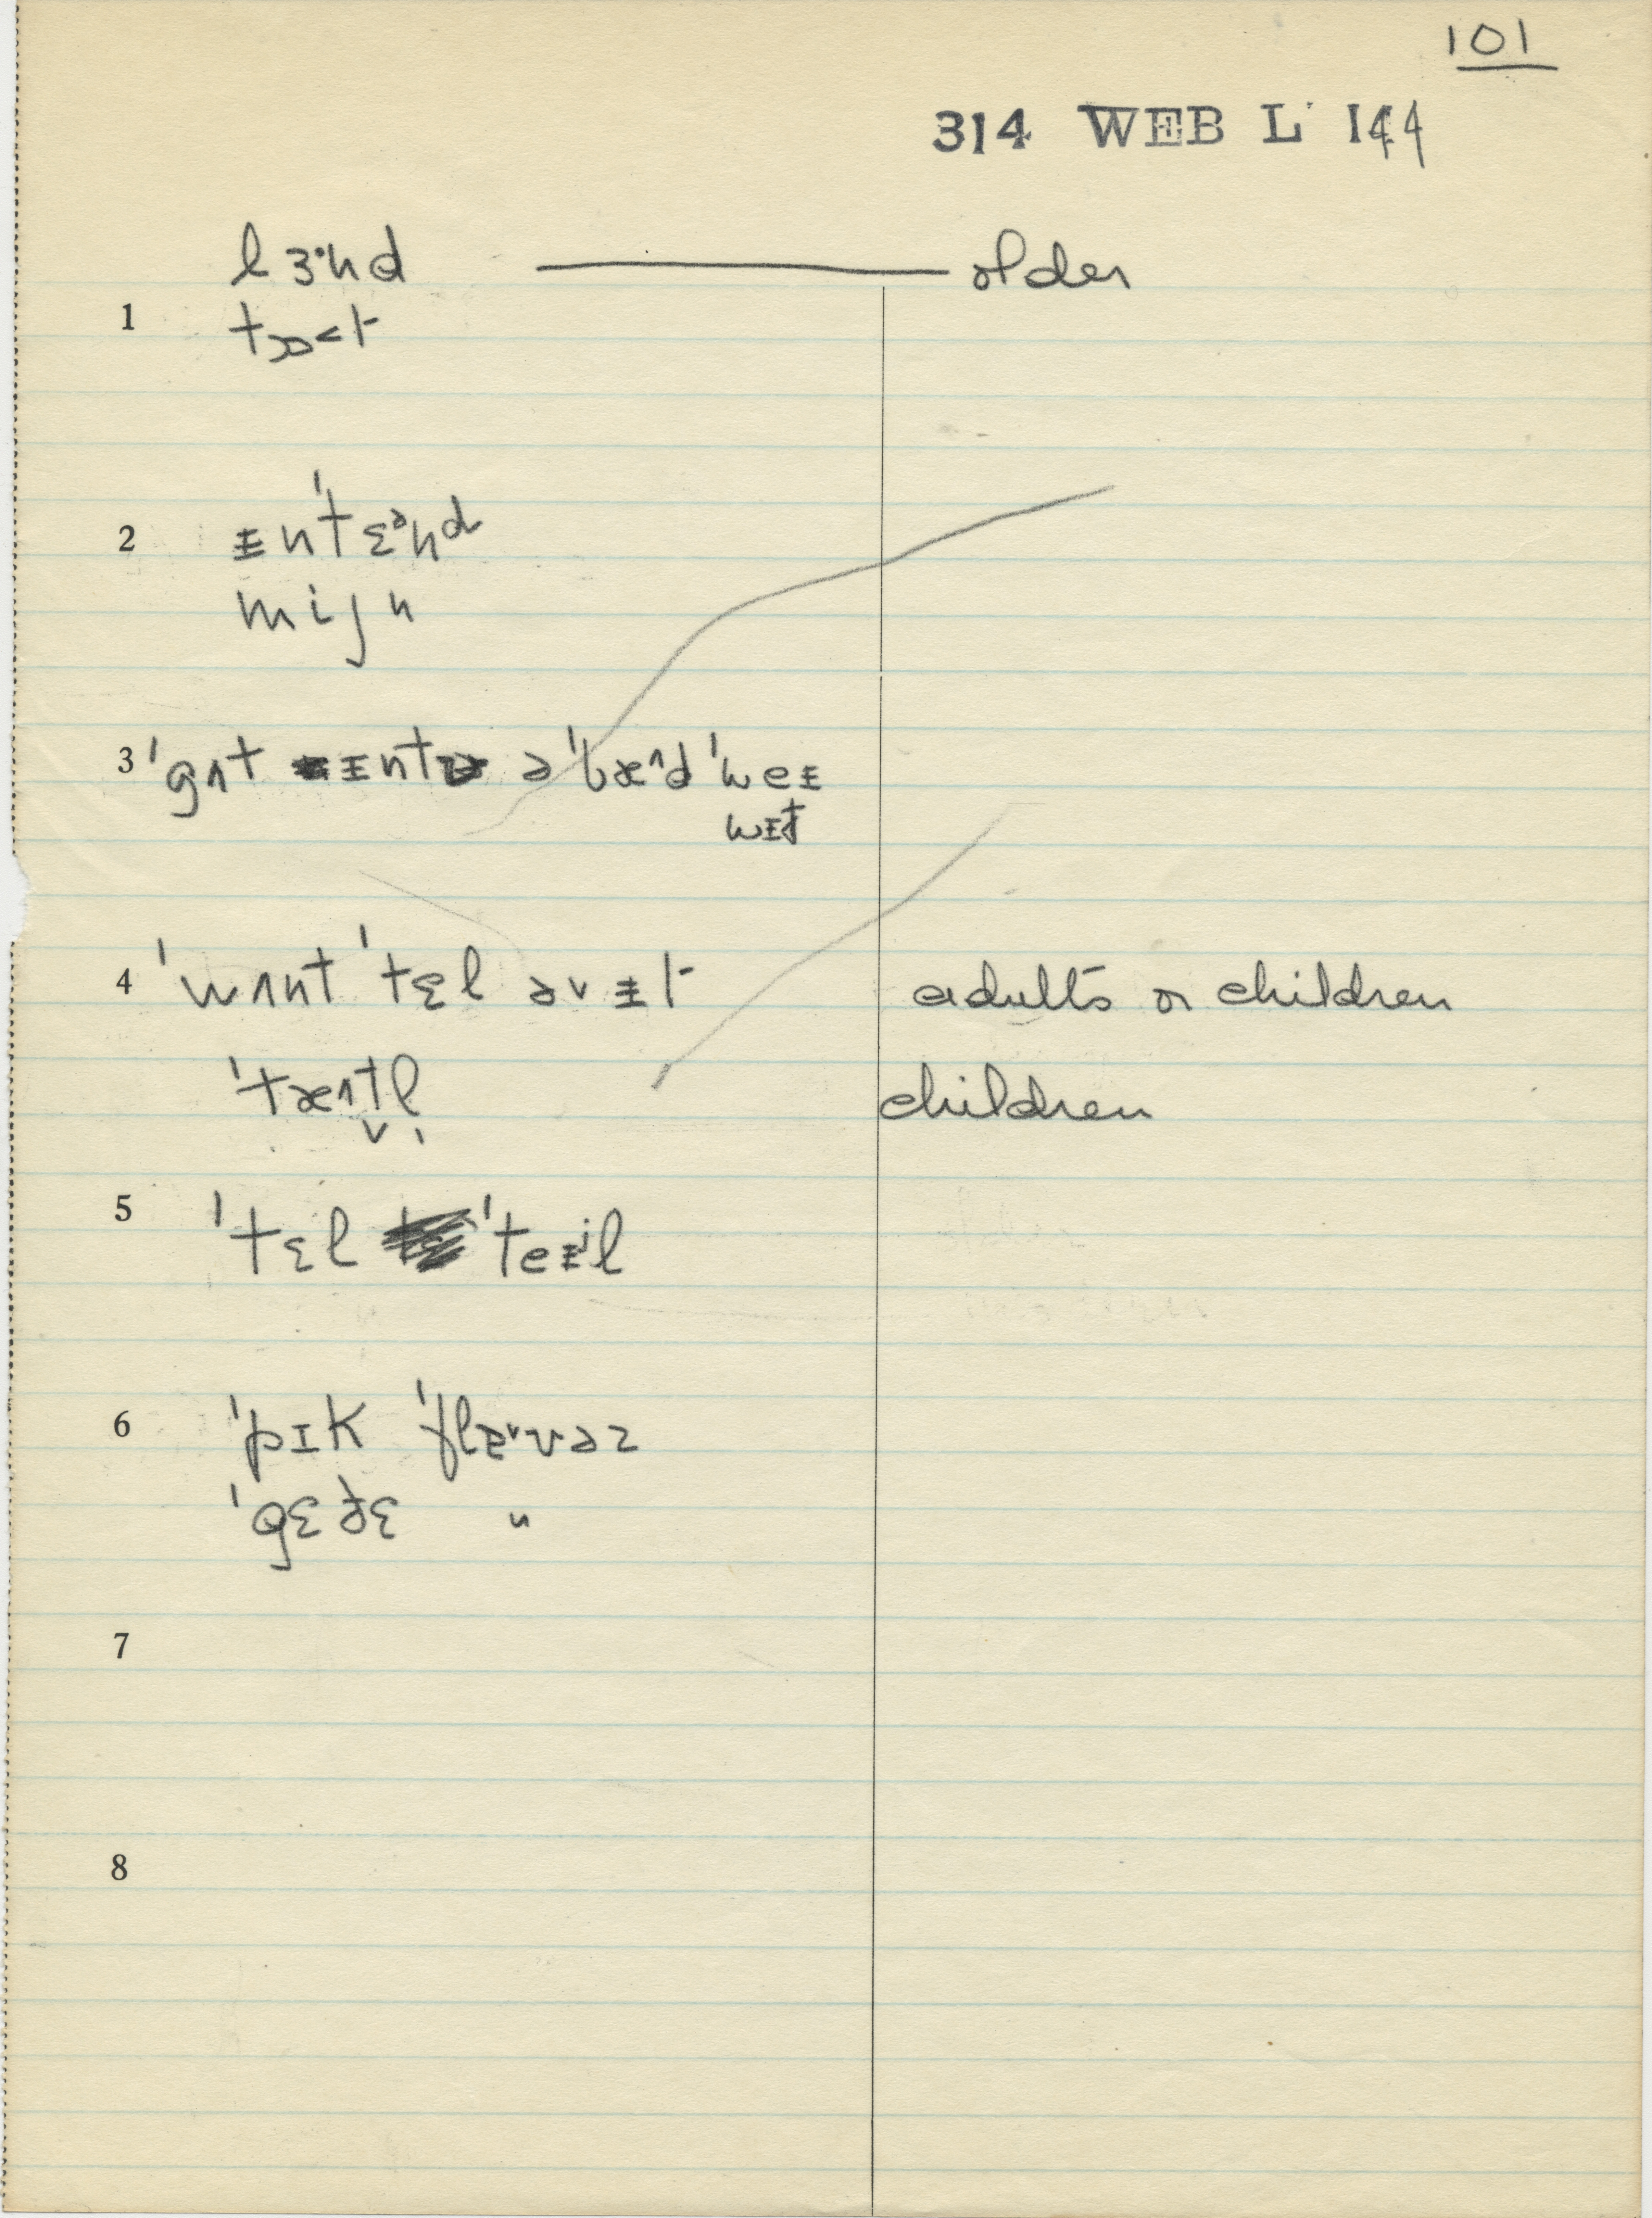 101
314 WEB L 144
lɜ·nd — older
1 tɔ˂t
2 ɪn'tɛᵊnd
mijn
3 'gʌt ɪnt ə 'bæ^d 'weɪ
wɪt
4 'wʌnt 'tɛl əv ɪt adults or children
'tæ^t̬l̩ children
5 'tɛl 'teɪʲl
6 'pɪk 'flævəz
'gɛðɛ "
7
8